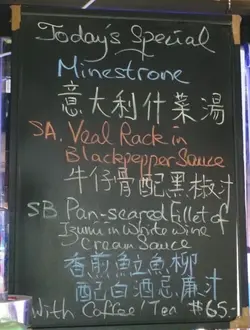 Today's Special
Minestrone
意大利什菜湯
SA. Veal Rack in
Blackpepper Sauce
牛仔骨配黑椒汁
SB. Pan-seared Fillet of
Izumi in White wine
Cream Sauce
香煎䱽魚柳
配白酒忌廉汁
With Coffee/Tea $65.-